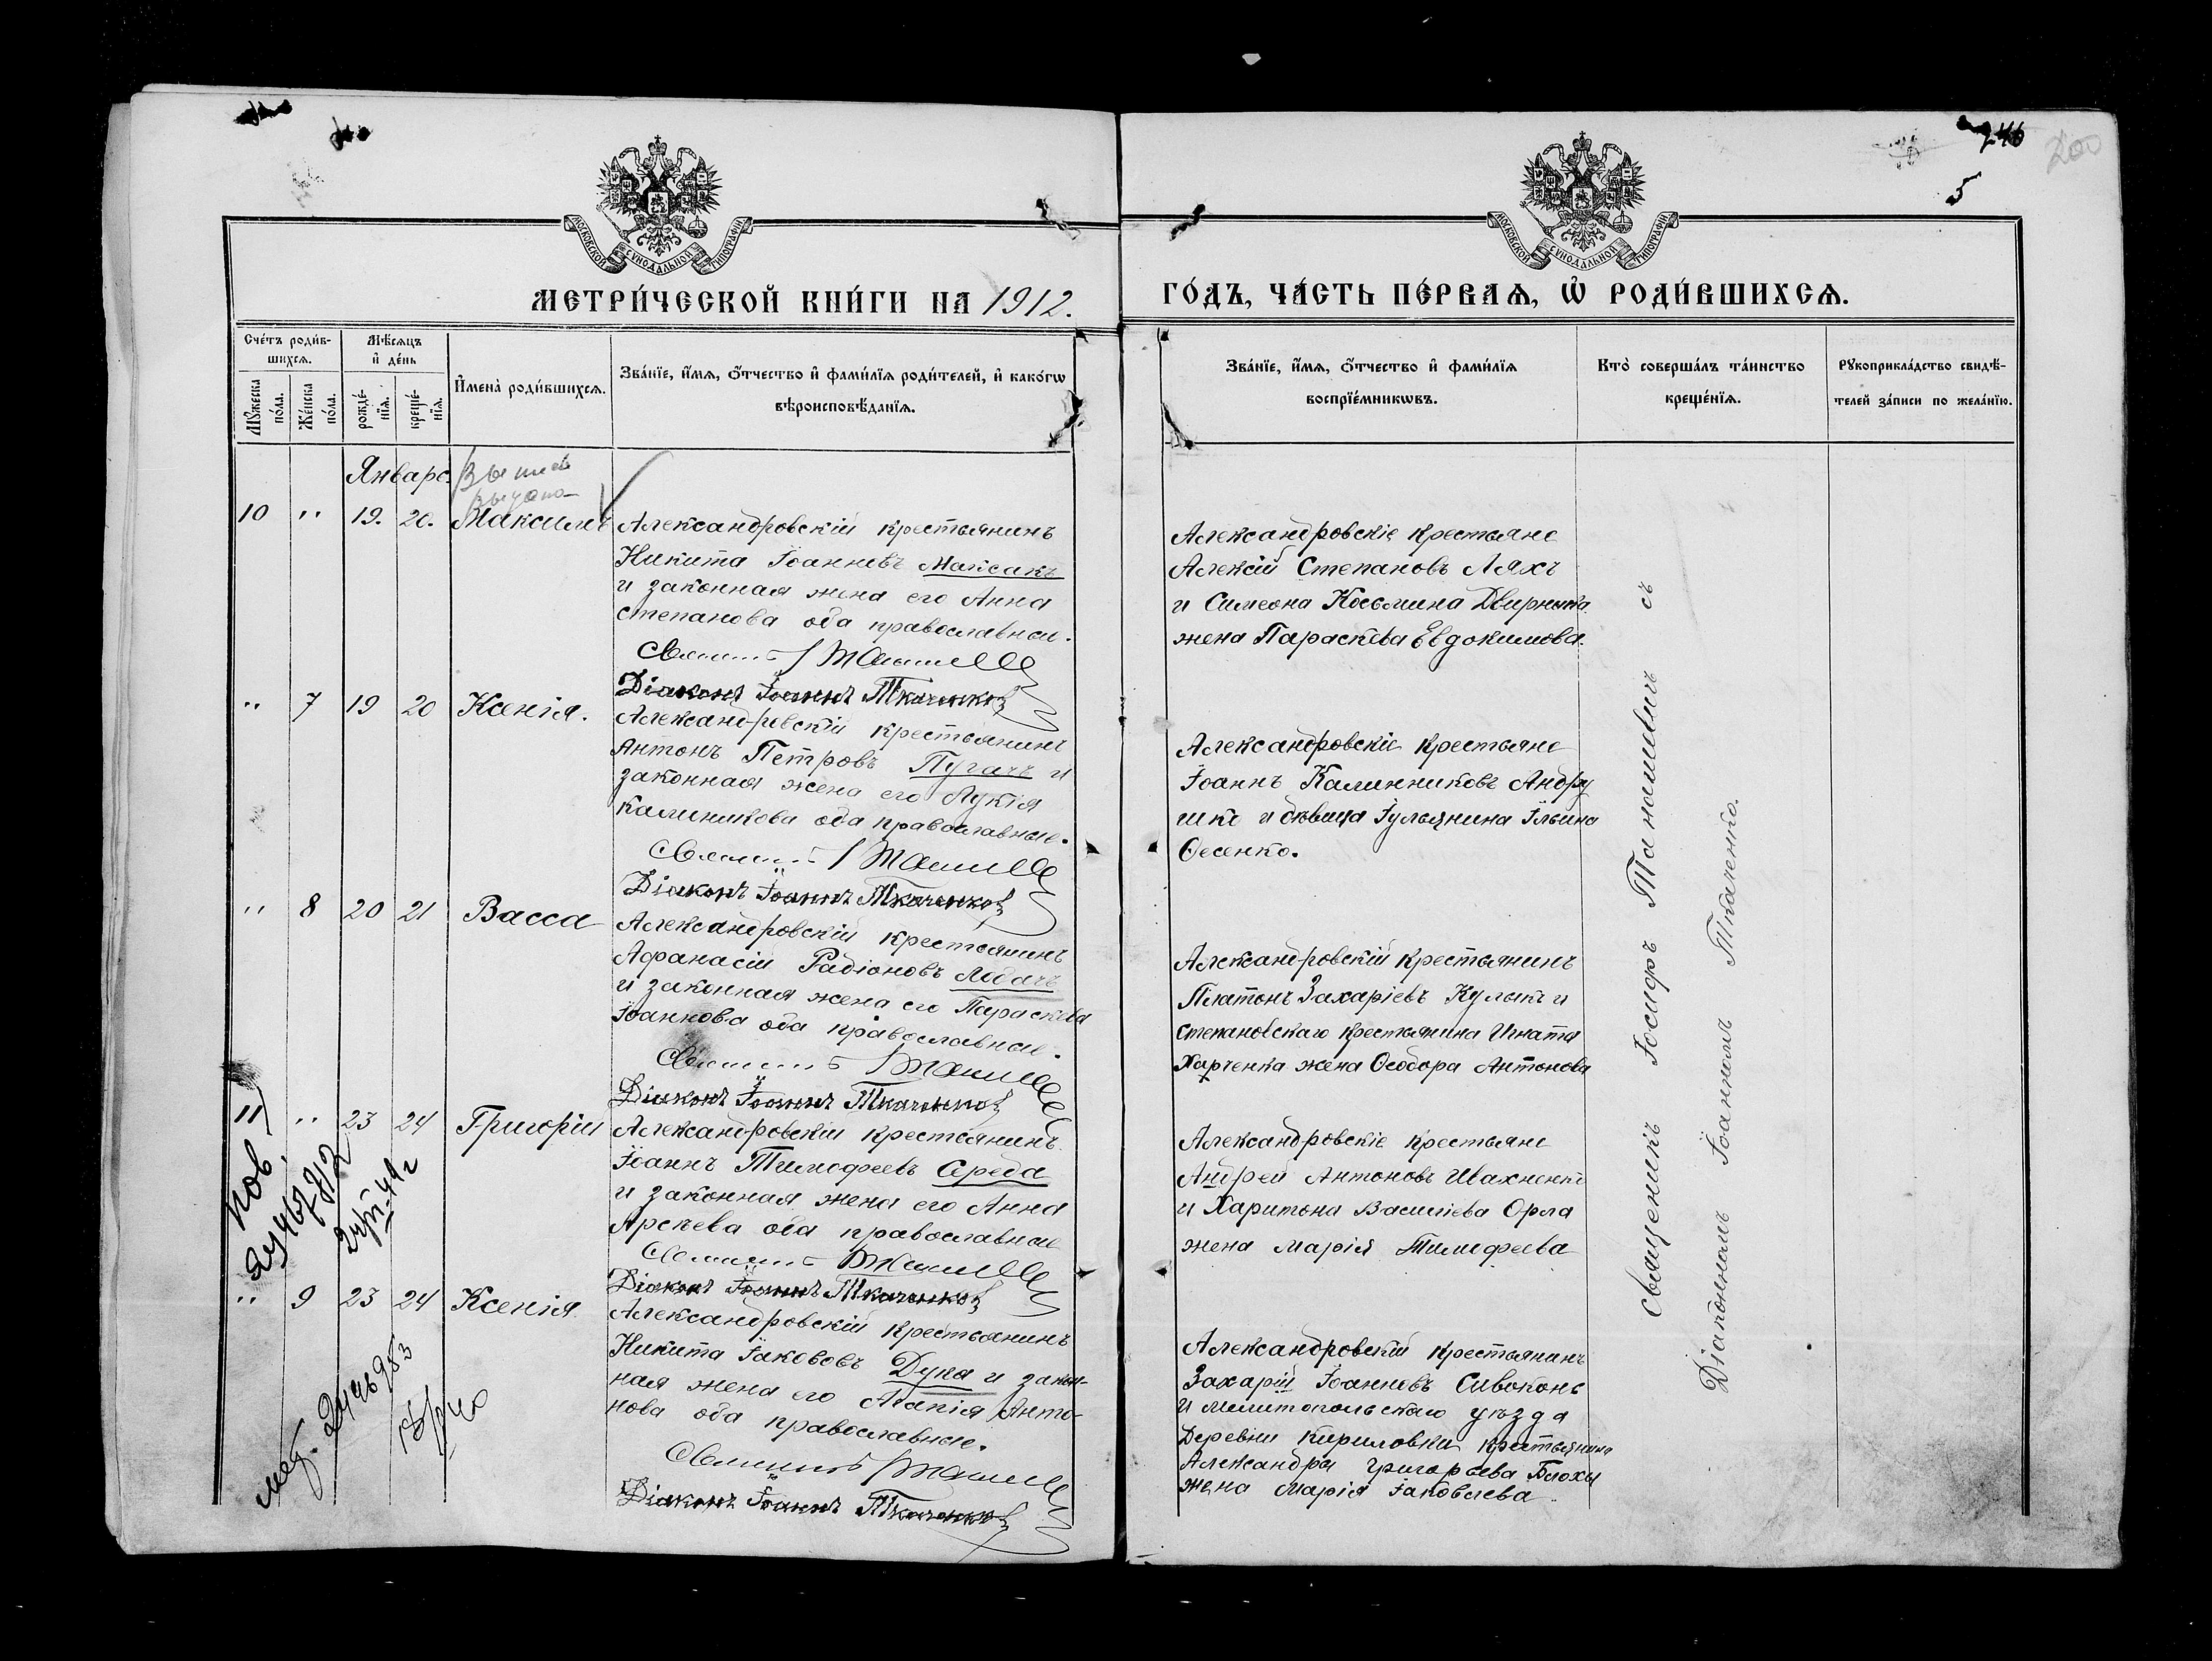 246
200
5
МОСКОВСКОЙ СѴНОДАЛЬНОЙ ТИПОГРАФІИ
МОСКОВСКОЙ СѴНОДАЛЬНОЙ ТИПОГРАФІИ
МЕТРИ́ЧЕСКОЙ КНИ́ГИ НА 1912.
ГО́ДЪ, ЧА́СТЬ ПЕ́РВАѦ, Ѡ҆ РОДИ́ВШИХСѦ.
Счетъ роди́в-
шихсѧ.
Мꙋжеска по́ла.
Же́нска по́ла.
Мѣ́сѧцъ
и҆ де́нь
рожде́-
нїѧ.
креще́-
нїѧ.
И҆мена̀ роди́вшихсѧ.
Зва́нїе, и҆́мѧ, ѻ҆́тчество и҆ фами́лїѧ роди́телей, и҆ како́гѡ
вѣроисповѣ́данїѧ.
Зва́нїе, и҆́мѧ, ѻ҆́тчество и҆ фами́лїѧ
воспрїе́мникѡвъ.
Кто̀ соверша́лъ та́инство
креще́нїѧ.
Рꙋкоприкла́дство свидѣ́-
телей за́писи по жела́нїю.
Январь
10 " 19. 20. Максимъ
Александровскій крестьянинъ
Никита Іоанновъ Максакъ
и законная жена его Анна
Степанова оба православные.
Діаконъ Іоаннъ Ткаченко
Александровскіе крестьяне
Алексій Степановъ Ляхъ
и Симеона Косьмина
жена Параскева Евдокимова.
" 7 19 20 Ксенія.
Александровскій крестьянинъ
Антонъ Петровъ Пугачъ и
законная жена его Лукія
Калиникова оба православные.
Діаконъ Іоаннъ Ткаченко
Александровскіе крестьяне
Іоаннъ Калинниковъ Андру
шко и дѣвица Іульянина Ильина
Ѳесенко.
" 8 20 21 Васса
Александровскій крестьянинъ
Афанасій Радіоновъ Лобачъ
и законная жена его Параскева
Іоаннова оба православные.
Діаконъ Іоаннъ Ткаченко
Александровскій крестьянинъ
Платонъ Захаріевъ Кулыкъ и
степановскаго крестьянина Игната
Харченка жена Ѳеодора Антонова
11 " 23 24 Григорій
Александровскій крестьянинъ
Іоаннъ Тимофеевъ Середа
и законная жена его Анна
оба православные
Діаконъ Іоаннъ Ткаченко
Александровскіе крестьяне
Андрей Антоновъ Шахненко
и Харитона Василіева Орла
жена Марія Тимофеева
Пов.
" 9 23 24 Ксенія
Александровскій крестьянинъ
Никита Іакововъ Дупа и закон-
ная жена его Агапія Анто-
нова оба православные.
Діаконъ Іоаннъ Ткаченко
Александровскій крестьянинъ
Захарій Іоанновъ Сивоконь
и мелитопольскаго уѣзда
деревни Кириловки крестьянина
Александра Григорьева Блохи
жена Марія Іаковлева.
Священникъ Іосифъ съ
Діакономъ Іоанномъ Ткаченко.